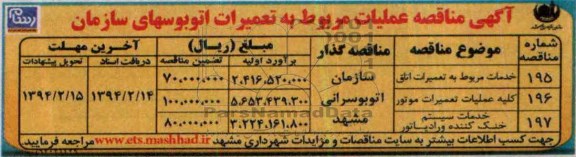 آگهی مناقصه عملیات مربوط به تعمیرات اتوبوسهای سازمان
شماره مناقصه
موضوع مناقصه
مناقصه گذار
مبلغ (ریال)
برآورد اولیه
تضمین مناقصه
آخرین مهلت
دریافت اسناد
تحویل پیشنهادات
۱۹۵ خدمات مربوط به تعمیرات اتاق ۲,۴۱۶,۵۲۰,۰۰۰ ۷۰,۰۰۰,۰۰۰
۱۹۶ کلیه عملیات تعمیرات موتور ۵,۶۵۳,۴۳۹,۳۰۰ ۱۰۰,۰۰۰,۰۰۰
۱۹۷ خدمات سیستم خنک کننده ورادیاتور ۳,۲۲۴,۱۶۱,۸۰۰ ۸۰,۰۰۰,۰۰۰
سازمان اتوبوسرانی مشهد
۱۳۹۴/۲/۱۴
۱۳۹۴/۲/۱۵
جهت کسب اطلاعات بیشتر به سایت مناقصات و مزایدات شهرداری مشهد www.ets.mashhad.ir مراجعه فرمایید
ParsNamadData